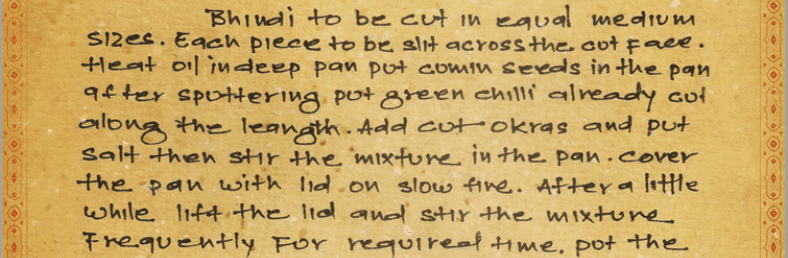 Bhindi to be cut in equal medium
sizes. Each piece to be slit across the cut face.
Heat oil in deep pan put cumin seeds in the pan
after sputtering put green chilli already cut
along the leangth. Add cut okras and put
salt then stir the mixture in the pan. cover
the pan with lid on slow fire. After a little
while lift the lid and stir the mixture
Frequently For required time. put the